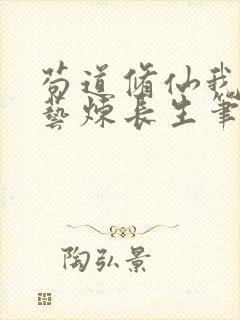 苟道脩仙我能
藝煉长生筆
陶弘景